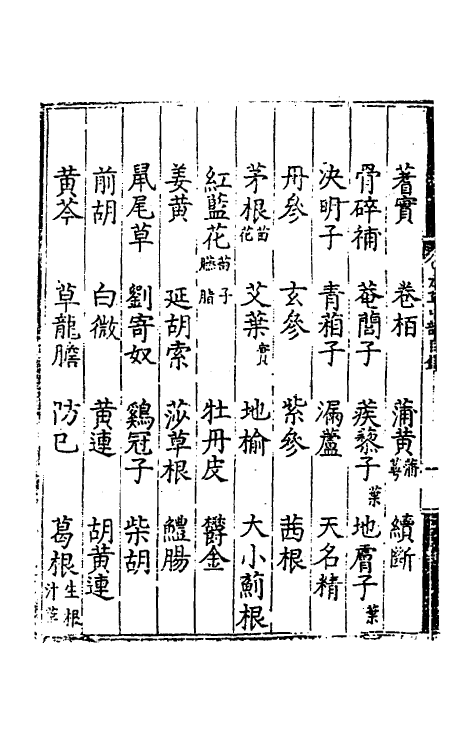 蓍實 卷栢 蒲黃 蒲萼 續斷
骨碎補 菴䕡子 蒺藜子 葉 地膚子 葉
决明子 青葙子 漏蘆 天名精
丹參 玄參 紫參 茜根
茅根 苗花 艾葉 實 地榆 大小薊根
紅藍花 苗子胭脂 牡丹皮 鬱金
姜黃 延胡索 莎草根 鱧腸
鼠尾草 劉寄奴 鷄冠子 柴胡
前胡 白微 黃連 胡黃連
黃芩 草龍膽 防巳 葛根 生根汁